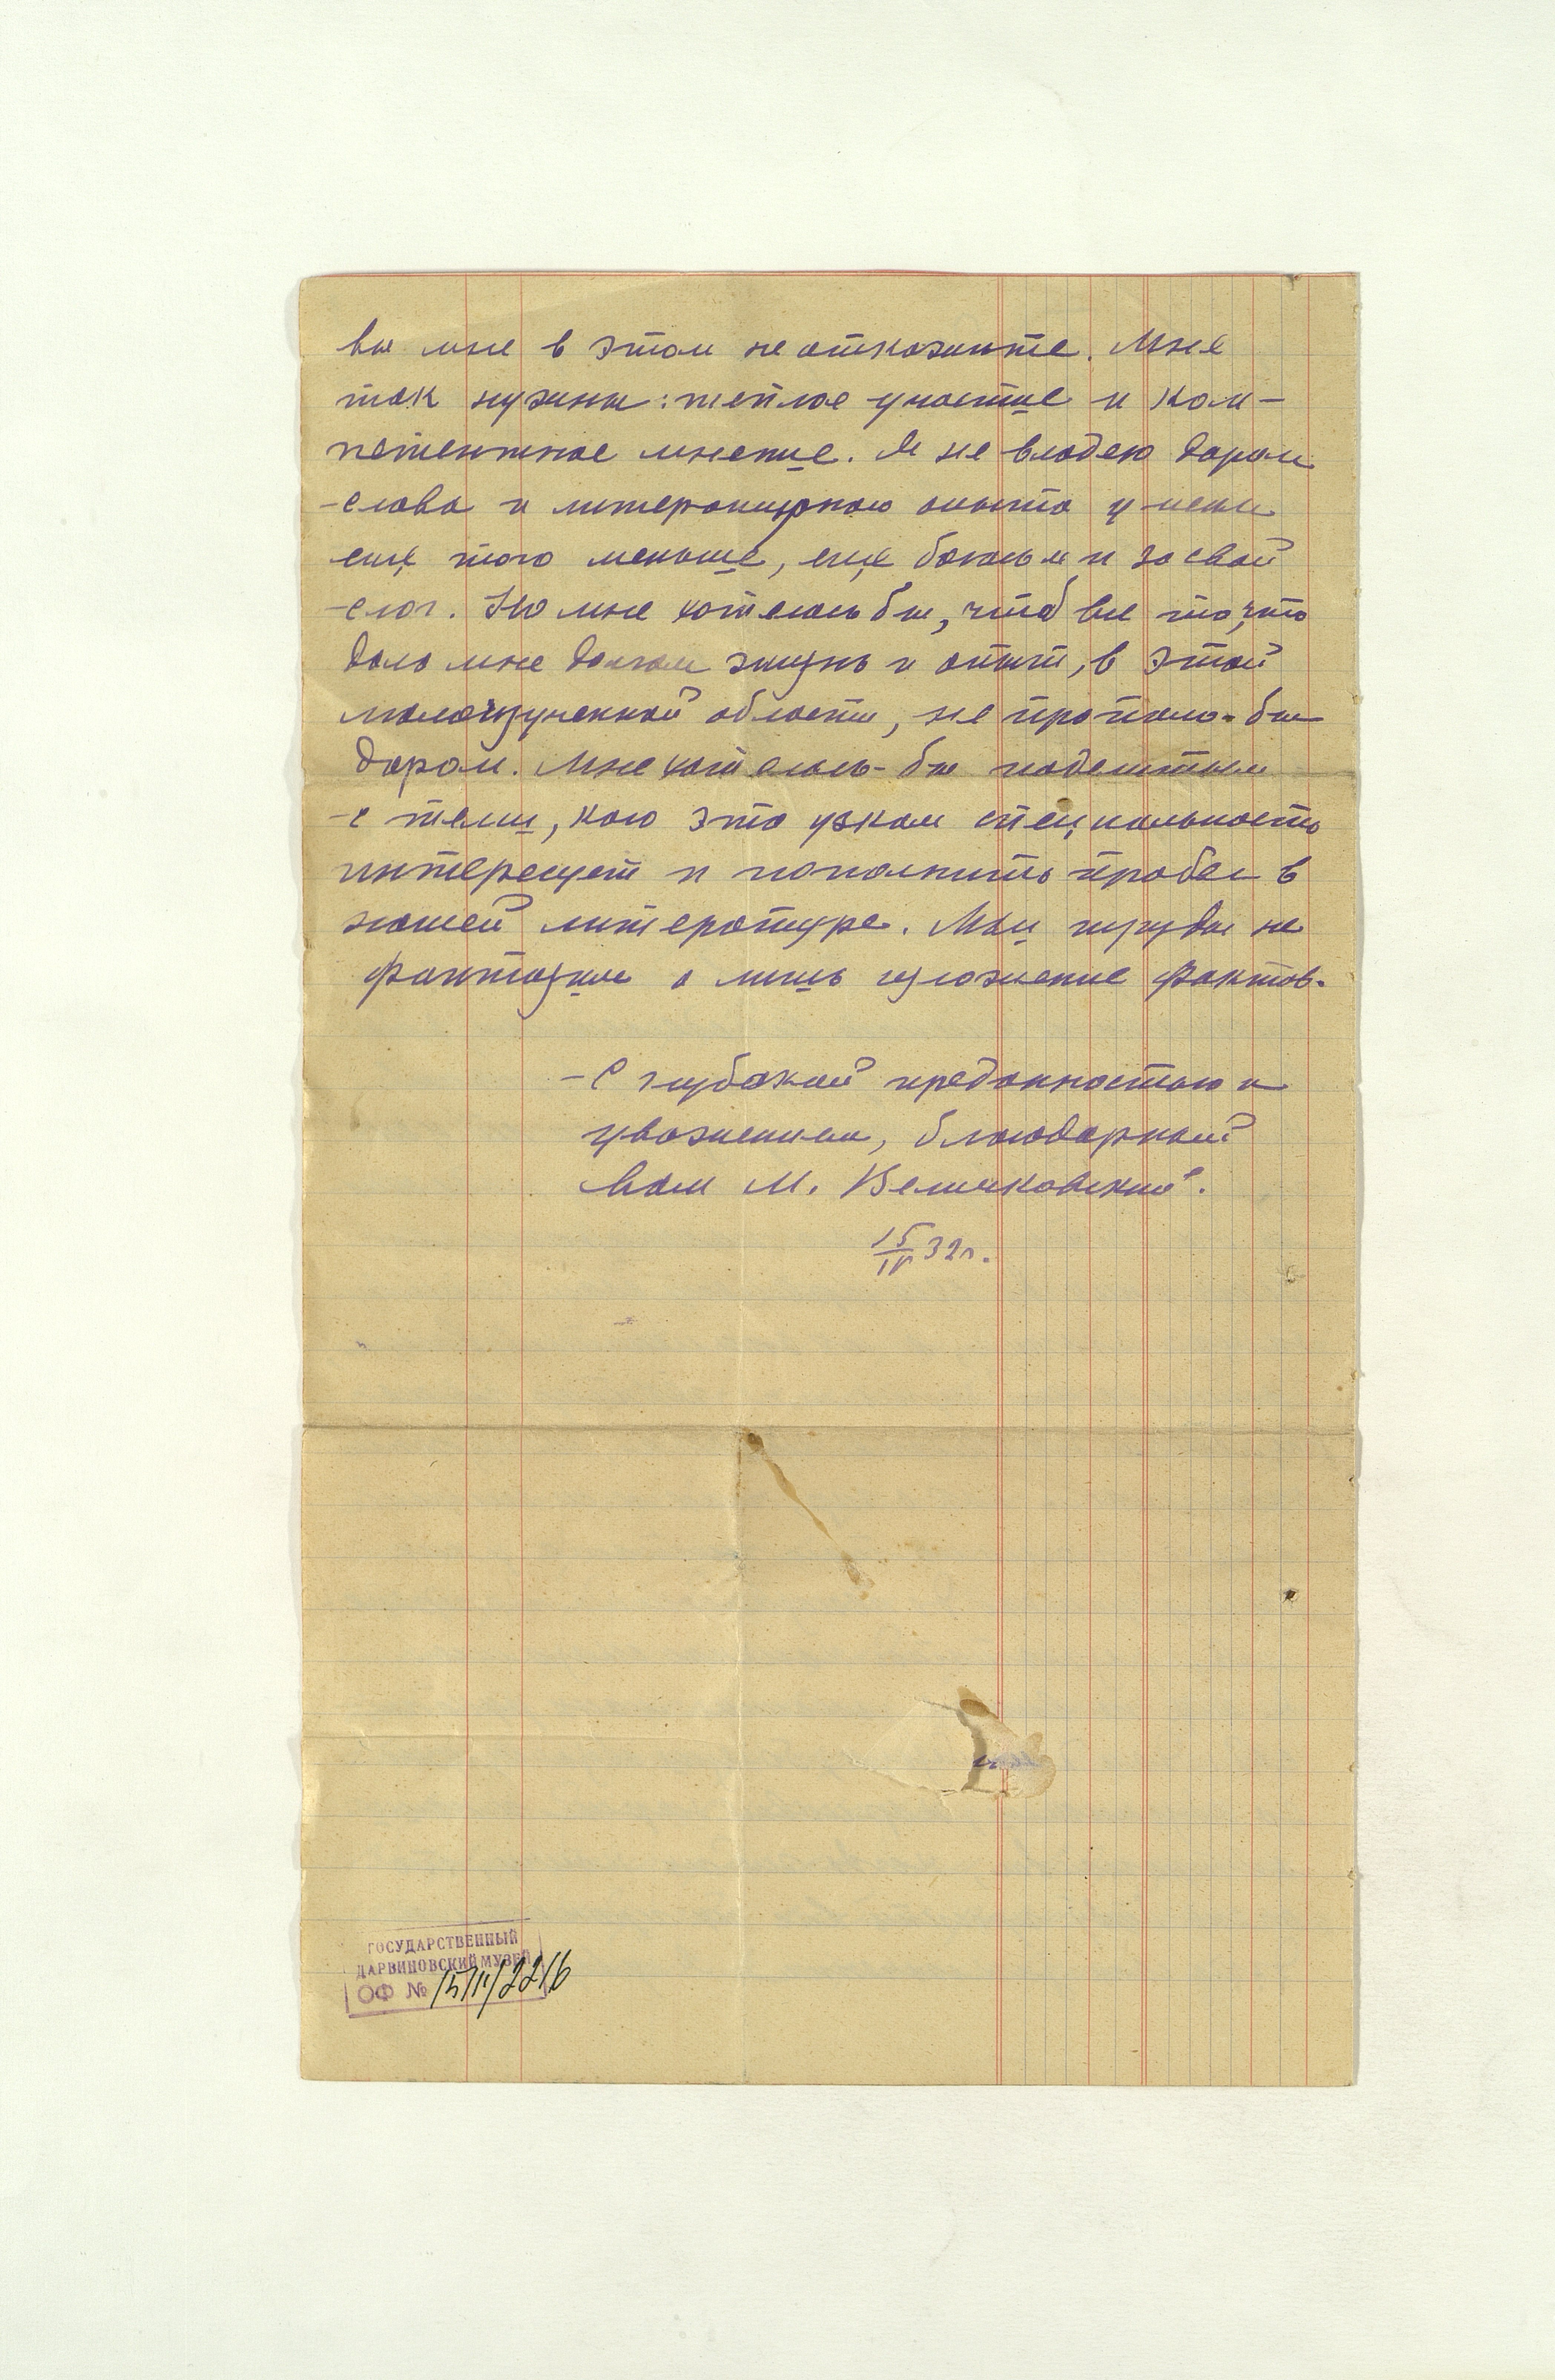 вы мне в этом не откажите. Мне
так нужны: теплое участие и ком-
петентное мнение. Я не владею даром
слова и литературного опыта у меня
ещё того меньше, ещё боюсь я и за свой
слог. Но мне хотелось бы, чтоб все то, что
дало мне долгая жизнь и опыт, в этой
малоизученной области, не пропало-бы
даром. Мне хотелось-бы поделиться
с теми, кого эта узкая специальность
интересует и пополнить пробел в
нашей литературе. Мои труды не
фантазия а лишь изложение фактов.
С глубокой преданностью и
уважением, благодарный
Вам М. Величковский.
15/IV 32 г.
ГОСУДАРСТВЕННЫЙ
ДАРВИНОВСКИЙ МУЗЕЙ
ОФ №